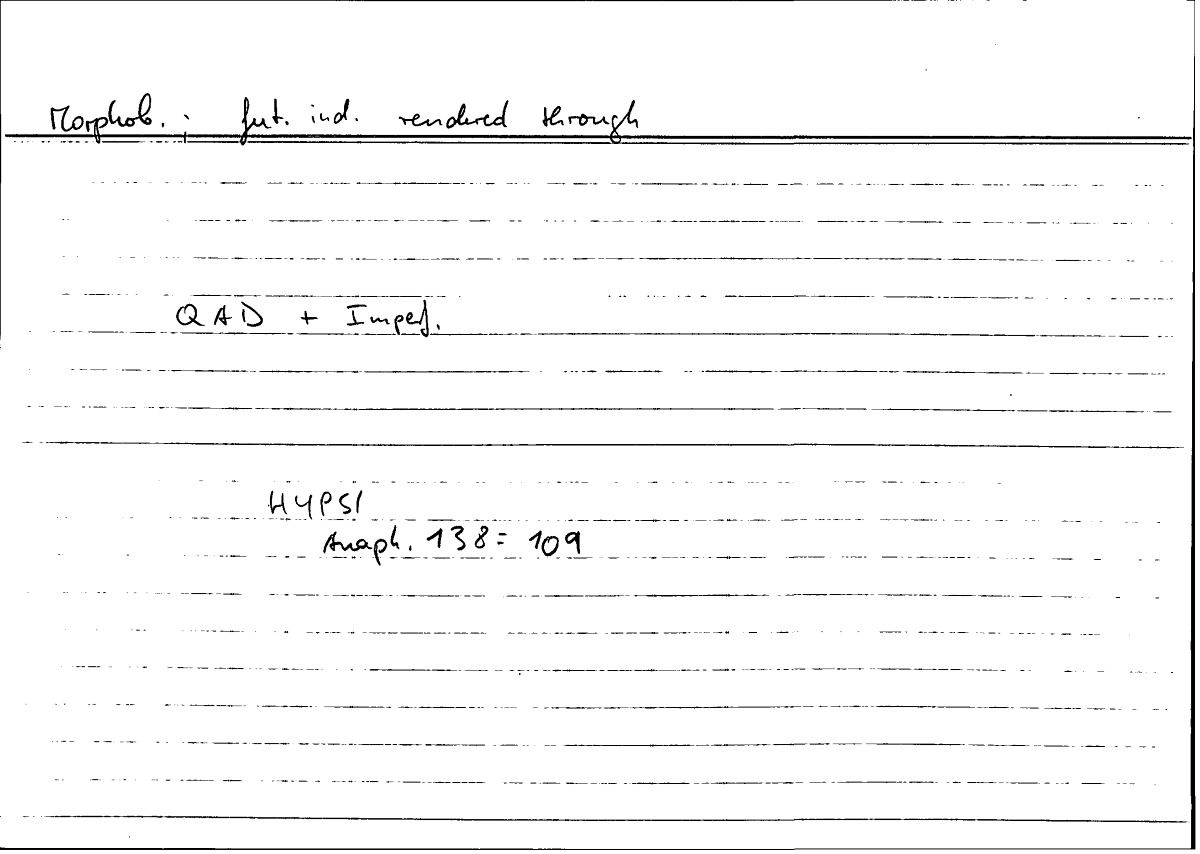 Morphol. ; fut. ind. rendered through
QAD + Imperf.
HYPSI
Anaph. 138 = 109